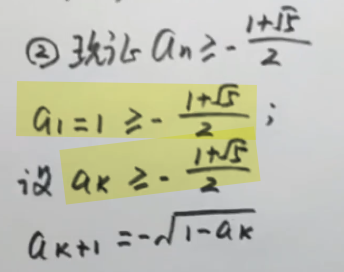 ② 现证 aₙ ≥ -(1+√5)/2
a₁ = 1 ≥ -(1+√5)/2 ;
设 aₖ ≥ -(1+√5)/2
aₖ₊₁ = -√(1-aₖ)